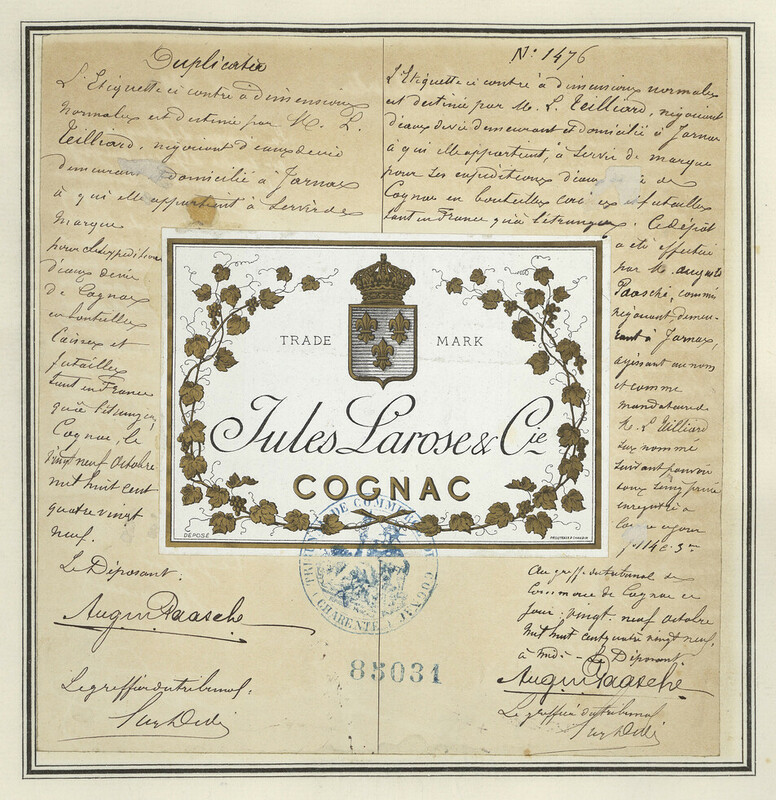 Duplicata
L'Etiquette ci contre à dimensions
normales est destinée par M. L.
Teilliard, négociant d'eaux de vie
demeurant domicilié à Jarnac
à qui elle appartient à servir de
marque
pour ches expéditions
d'eaux de vie
de Cognac
en bouteilles
Caisses et
futailles
tant en France
qu'à l'étranger
Cognac, le
vingt neuf Octobre
mil huit cent
quatre vingt
neuf.
Le Déposant.
August Paasche
Le greffier du tribunal.
N° 1476
L'Etiquette ci contre à dimensions normales
est destinée par M. L. Teilliard, négociant
d'eaux de vie demeurant et domicilié à Jarnac
à qui elle appartient, à servir de marque
pour ses expéditions d'eaux de vie de
Cognac en bouteilles et futailles
tant en France qu'à l'étranger. Ce dépôt
a été effectué
par M. Auguste
Paasche, commis
négociant demeu-
rant à Jarnac,
agissant au nom
et comme
mandataire de
M. L Teilliard
sus nommé
suivant pouvoir
sous seing privé
enregistré à
Cognac ce jour
f° 114 c. 3
Au greffe du tribunal de
Commerce de Cognac ce
jour vingt neuf octobre
mil huit cent quatre vingt neuf.
à midi - Le Déposant.
August Paasche
Le greffier du tribunal
TRADE MARK
Jules Larose & Cie
COGNAC
DÉPOSÉ
TRIBUNAL DE COMMERCE DE COGNAC
(CHARENTE)
85031